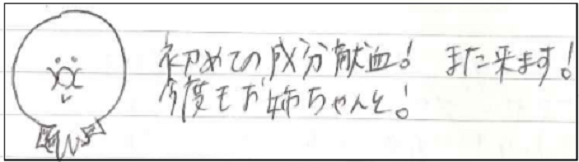 初めての成分献血! また来ます!
今度もお姉ちゃんと!